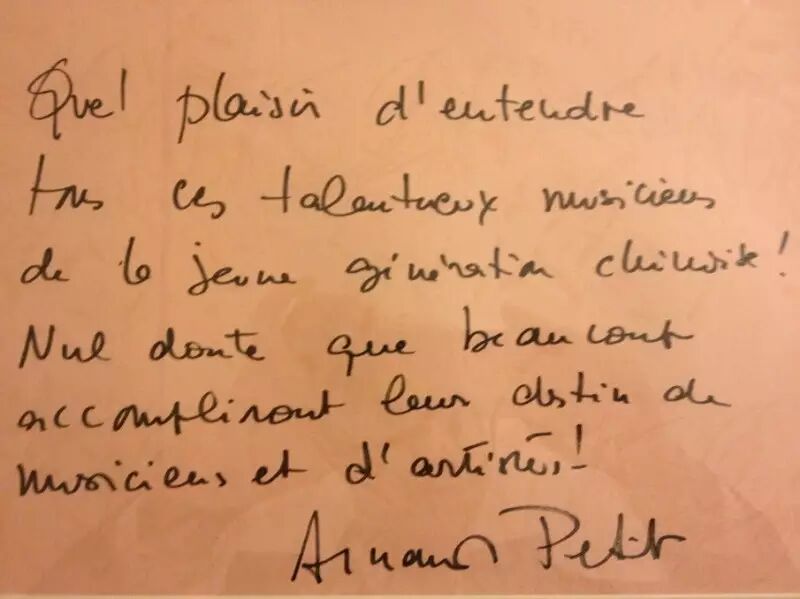 Quel plaisir d'entendre
tous ces talentueux musiciens
de la jeune génération chinoise !
Nul doute que beaucoup
accompliront leur destin de
musiciens et d'artistes !
Arnaud Petit